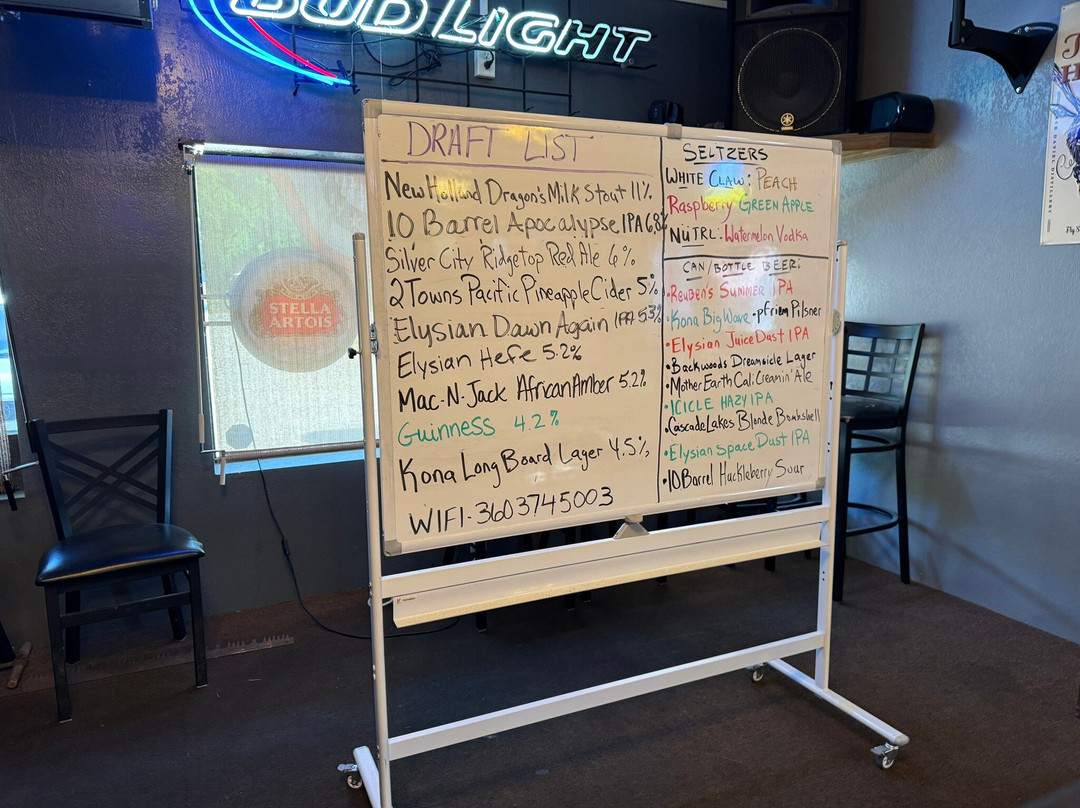 BUD LIGHT
STELLA
ARTOIS
DRAFT LIST
New Holland Dragon's Milk Stout 11%
10 Barrel Apocalypse IPA 6.8%
Silver City Ridgetop Red Ale 6%
2 Towns Pacific Pineapple Cider 5%
Elysian Dawn Again IPA 5.3%
Elysian Hefe 5.2%
Mac-N-Jack African Amber 5.2%
Guinness 4.2%
Kona Long Board Lager 4.5%
WIFI-3603745003
SELTZERS
WHITE CLAW: PEACH
Raspberry GREEN APPLE
NüTRL. Watermelon Vodka
CAN/BOTTLE BEER:
•Reuben's Summer IPA
•Kona Big Wave •pfriem Pilsner
•Elysian Juice Dust IPA
•Backwoods Dreamsicle Lager
•Mother Earth Cali Creamin' Ale
•ICICLE HAZY IPA
•Cascade Lakes Blonde Bombshell
•Elysian Space Dust IPA
•10 Barrel Huckleberry Sour